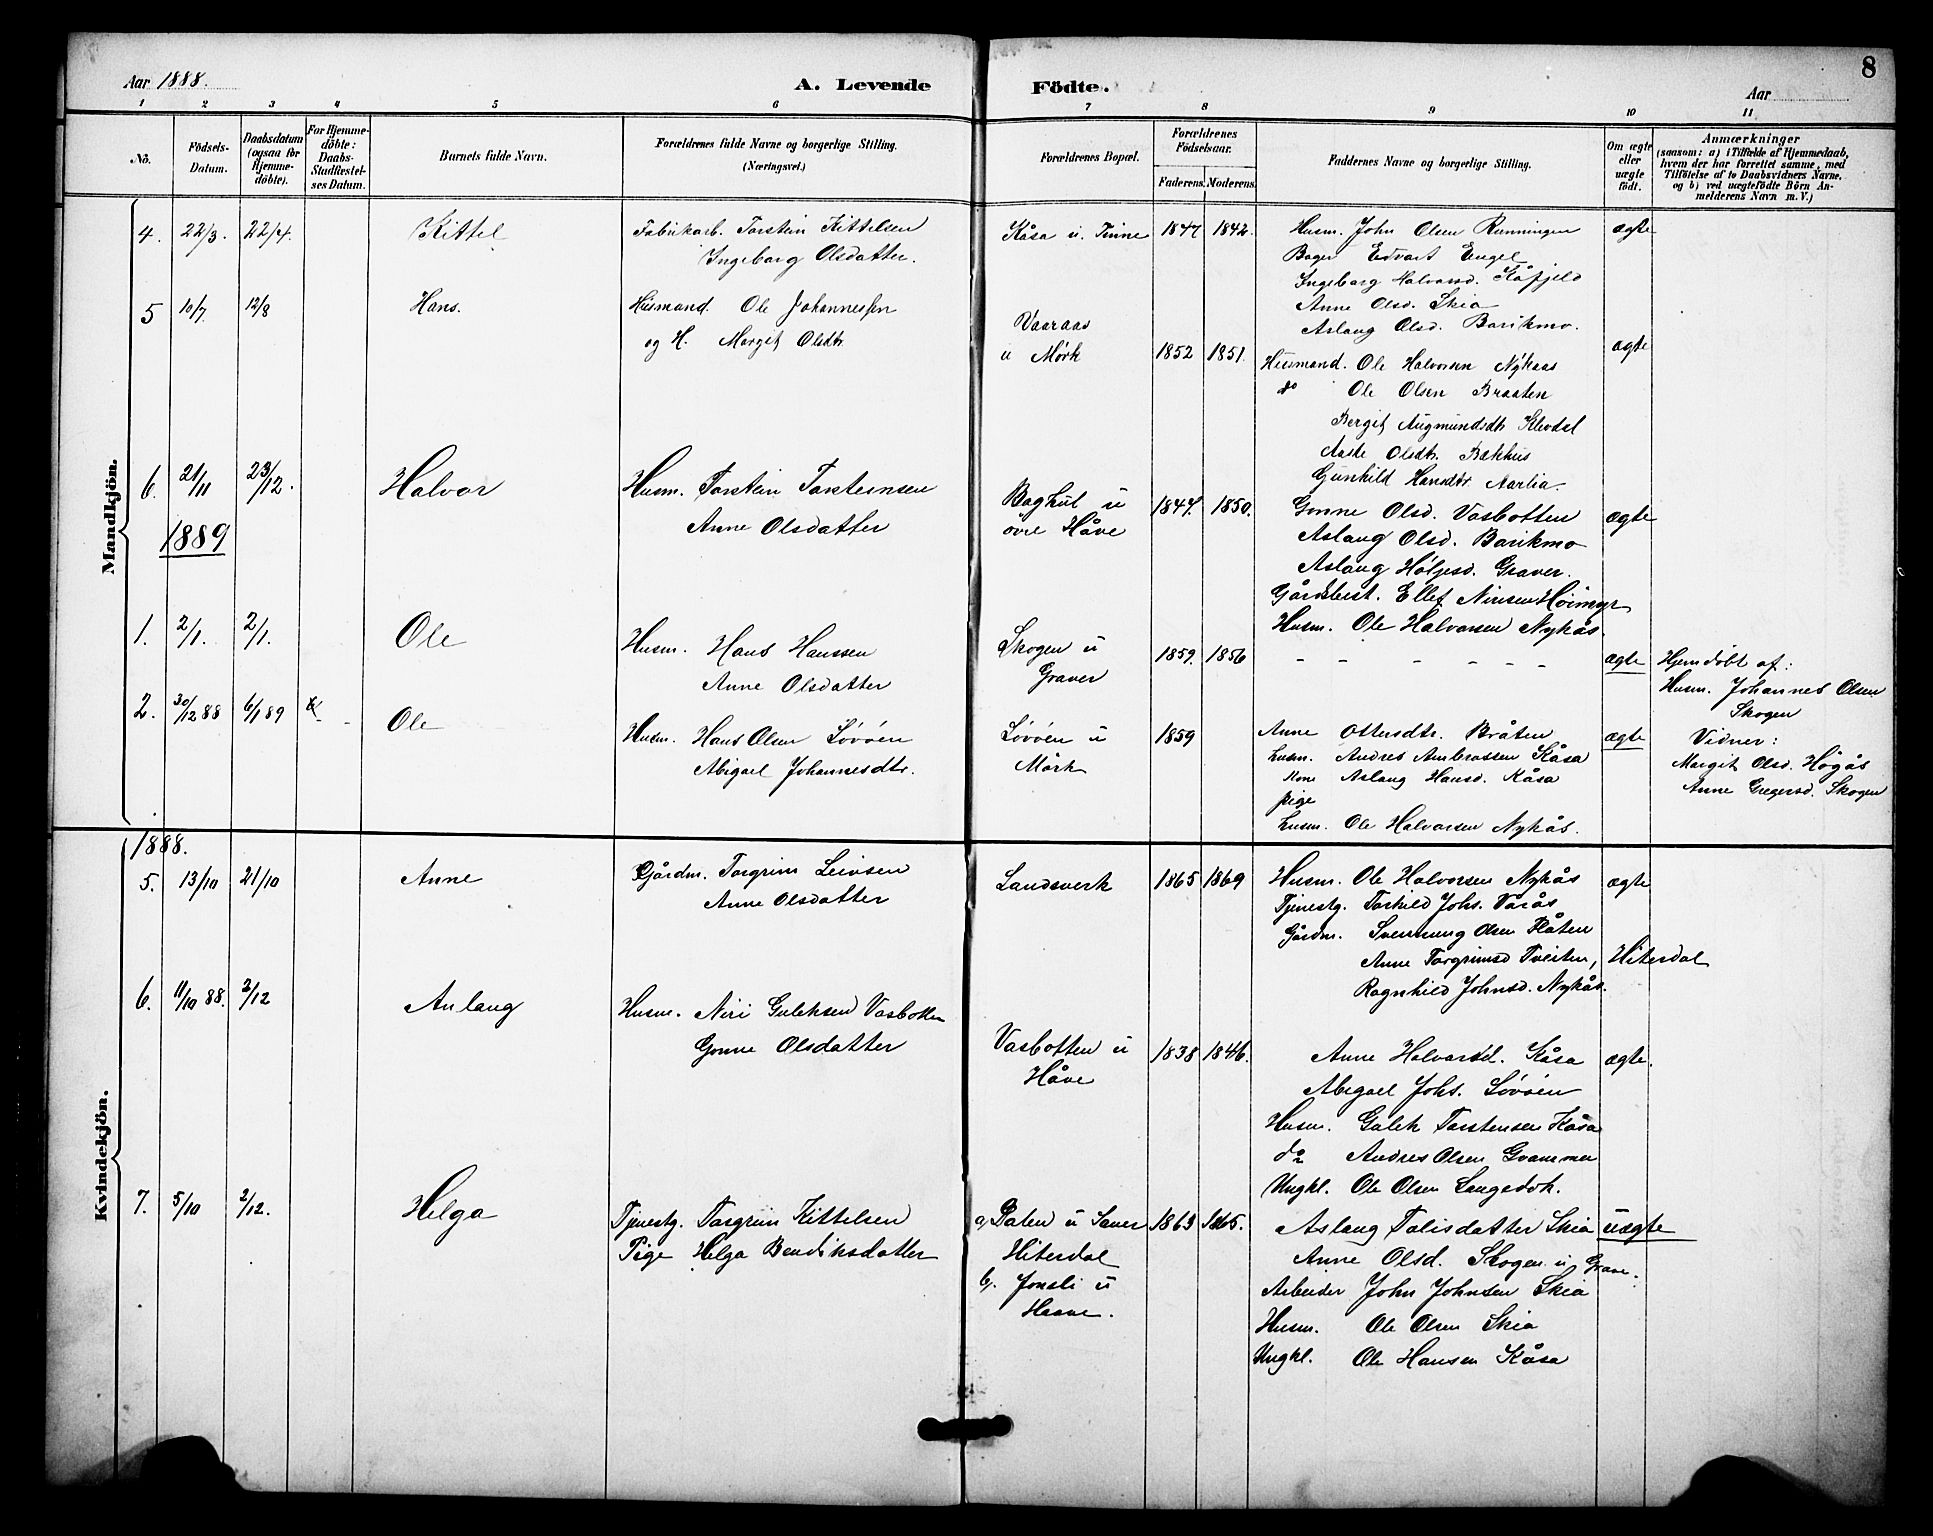 Aar 1888. A. Levende Födte. Aar 8
1 2 3 4 5 6 7 8 9 10 11
No. Födsels-Datum. Daabsdatum (ogsaa for Hjemmedöbte). For Hjemmedöbte: Daabs-Stadfæstelses Datum. Barnets fulde Navn. Forældrenes fulde Navne og borgerlige Stilling. (Næringsvei.) Forældrenes Bopæl. Forældrenes Födselsaar. Faderens. Moderens. Faddernes Navne og borgerlige Stilling. Om ægte eller uægte födt. Anmærkninger (saasom: a) i Tilfælde af Hjemmedaab, hvem der har forrettet samme, med Tilföielse af to Daabsvidners Navne, og b) ved uægtefödte Börn Anmelderens Navn m. V.)
Mandkjön.
4. 22/3. 22/4. Kittel Fabrikarb. Torstein Kittelsen Kåsa u. Tinne 1847 1842. Husm. John Olsen Rønningen ægte
Ingeborg Olsdatter. Bager Edvart Engel
Ingeborg Halvorsd. Kåfjeld
Anne Olsd. Skia
Aslaug Olsd. Barikmo.
5 10/7. 12/8 Hans. Husmand. Ole Johannessen Vaaraas
og H. Margit Olsdtr u Mørk 1852 1851. Husmand. Ole Halvorsen Nykaas ægte
do Ole Olsen Braaten
Bergit Augmundsdtr Klevdal
Aaste Olsdtr. Bakhus
Gunhild Hansdtr Aarlia.
6. 21/11 23/12. Halvor Husm. Torstein Torsteinsen Baghut u 1847. 1850. Gonne Olsd. Vasbotten ægte
Anne Olsdatter övre Håve Aslaug Olsd. Barikmo
Aslaug Høljesd. Graver.
Gårdbest. Ellef Nirisen Høimyr
Husm. Ole Halvorsen Nykås.
1889
1. 2/1. 2/1. Ole Husm. Hans Hanssen Skogen u 1859. 1856 - - - - - - ægte Hjemdöbt af:
Anne Olsdatter Graver Husm. Johannes Olsen
Skogen
2. 30/12 88 6/1 89 Ole Husm. Hans Olsen Løvöen Løvöen u 1859 Anne Ottersdtr. Bråten ægte Vidner:
Abigael Johannesdtr. Mörk Husm. Andres Ambrossen Kåsa Margit Olsd. Högås
Kone Aslaug Hansd. Kåsa Anne Gregersd. Skogen
pige
Husm. Ole Halvorsen Nykås.
Kvindekjön.
1888.
5. 13/10 21/10 Anne Gårdm. Torgrim Leivsen Landsverk 1865 1869 Husm. Ole Halvorsen Nykås ægte
Anne Olsdatter Tjenestg. Torkild Johs. Vårås
Gårdm. Svennung Olsen Flåten
Anne Torgrimsd Tveiten, Hiterdal
Ragnhild Johnsd. Nykås.
6. 11/10 88. 2/12 Anlaug Husm. Niri Guleksen Vasbotten Vasbotten u 1838 1846. Anne Halvorsd. Kåsa ægte.
Gonne Olsdatter Håve Abigael Johs. Lövöen
Husm. Gulek Torstensen Kåsa
do Andres Olsen Grammer
Ungkl. Ole Olsen Langedok.
7. 5/10 2/12. Helga Tjenestg. Torgrim Kittelsen a, Raten u Sauer 1863 1865. Aslaug Talisdatter Skia uægte
Pige Helga Bendiksdatter Hiterdal Anne Olsd. Skogen u Grave.
b. Jonsli u Arbeider John Johnsen Skia
Haave. Husm. Ole Olsen Skia
Ungkl. Ole Hansen Kåsa